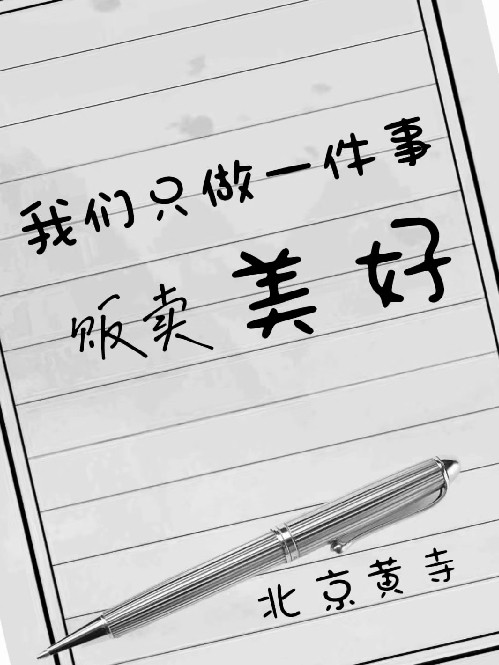 我们只做一件事
贩卖美好
北京黄寺